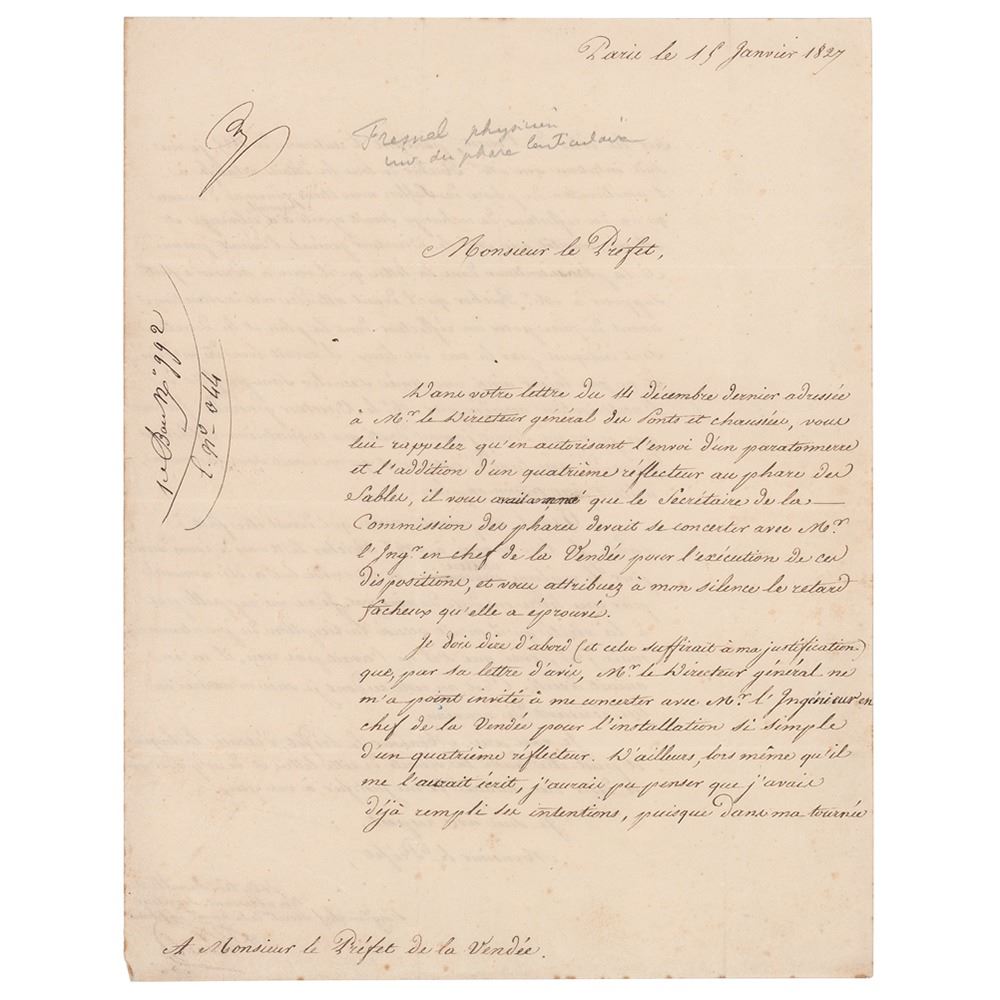 Paris le 15 Janvier 1827
Fresnel physicien
inv. du phare lenticulaire
Monsieur le Préfet,
1re Don N.o 992
C. N.o 044
Dans votre lettre du 14 décembre dernier adressée
à Mr. le Directeur général des Ponts et chaussées, vous
lui rappelez qu'en autorisant l'envoi d'un paratonnerre
et l'addition d'un quatrième réflecteur au phare des
Sables, il vous que le Secrétaire de la
Commission des phares devait se concerter avec Mr.
l'Ingr. en chef de la Vendée pour l'exécution de ces
dispositions, et vous attribuez à mon silence le retard
facheux qu'elle a éprouvé.
Je dois dire d'abord (et cela suffirait à ma justification)
que, par sa lettre d'avis, Mr. le Directeur général ne
m'a point invité à me concerter avec Mr. l'Ingénieur en
chef de la Vendée pour l'installation si simple
d'un quatrième réflecteur. D'ailleurs, lors même qu'il
me l'aurait écrit, j'aurais pu penser que j'avais
déjà rempli ses intentions, puisque dans ma tournée
A Monsieur le Préfet de la Vendée.